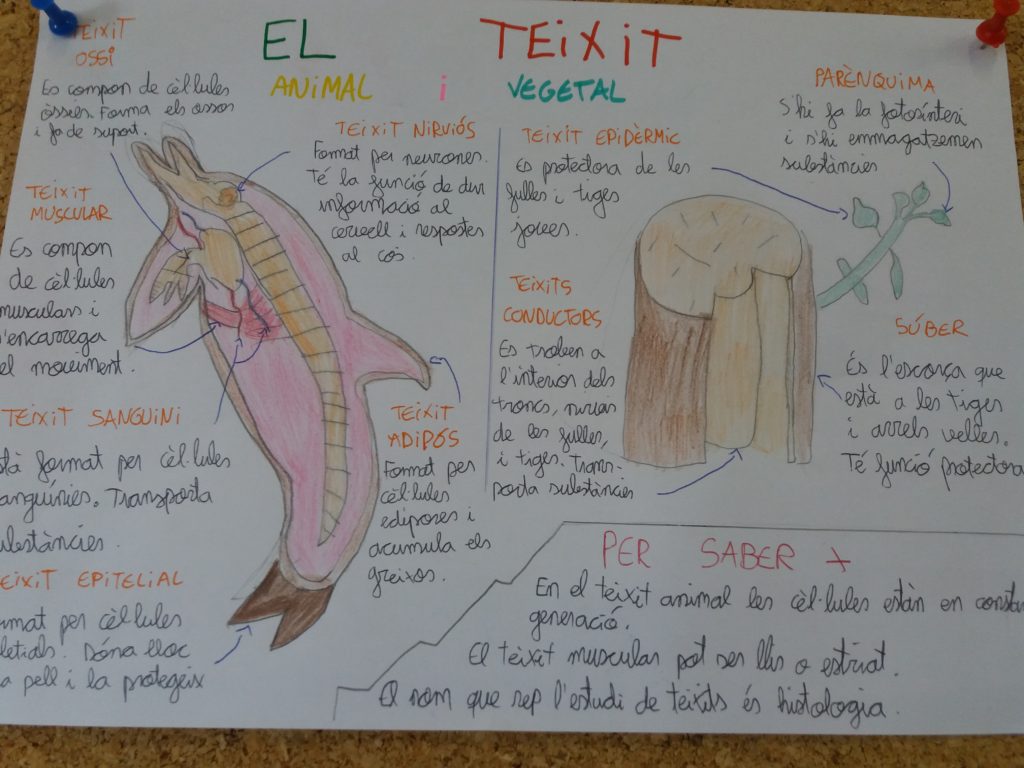 EL TEIXIT
ANIMAL i VEGETAL
TEIXIT
OSSI
Es compon de cèl·lules
òssies. Forma els ossos
i fa de suport.
TEIXIT
MUSCULAR
Es compon
de cèl·lules
musculars i
s'encarrega
el moviment.
TEIXIT SANGUINI
format per cèl·lules
sanguínies. Transporta
substàncies.
TEIXIT EPITELIAL
format per cèl·lules
Dóna lloc
a pell i la protegeix
TEIXIT NIRVIÓS
Format per neurones.
Té la funció de dur
informació al
cervell i respostes
al cos.
TEIXIT
ADIPÓS
Format per
cèl·lules
ediposes i
acumula els
greixos.
TEIXIT EPIDÈRMIC
Es protectora de les
fulles i tiges
joves.
TEIXITS
CONDUCTORS
Es troben a
l'interior dels
troncs,
de les fulles,
i tiges. Trans-
porta substàncies
PARÈNQUIMA
S'hi fa la fotosíntesi
i s'hi emmagatzemen
substàncies
SÚBER
És l'escorça que
està a les tiges
i arrels velles.
Té funció protectora
PER SABER +
En el teixit animal les cèl·lules estàn en constan
generació.
El teixit muscular pot ser llis o estriat.
El nom que rep l'estudi de teixits és histologia.